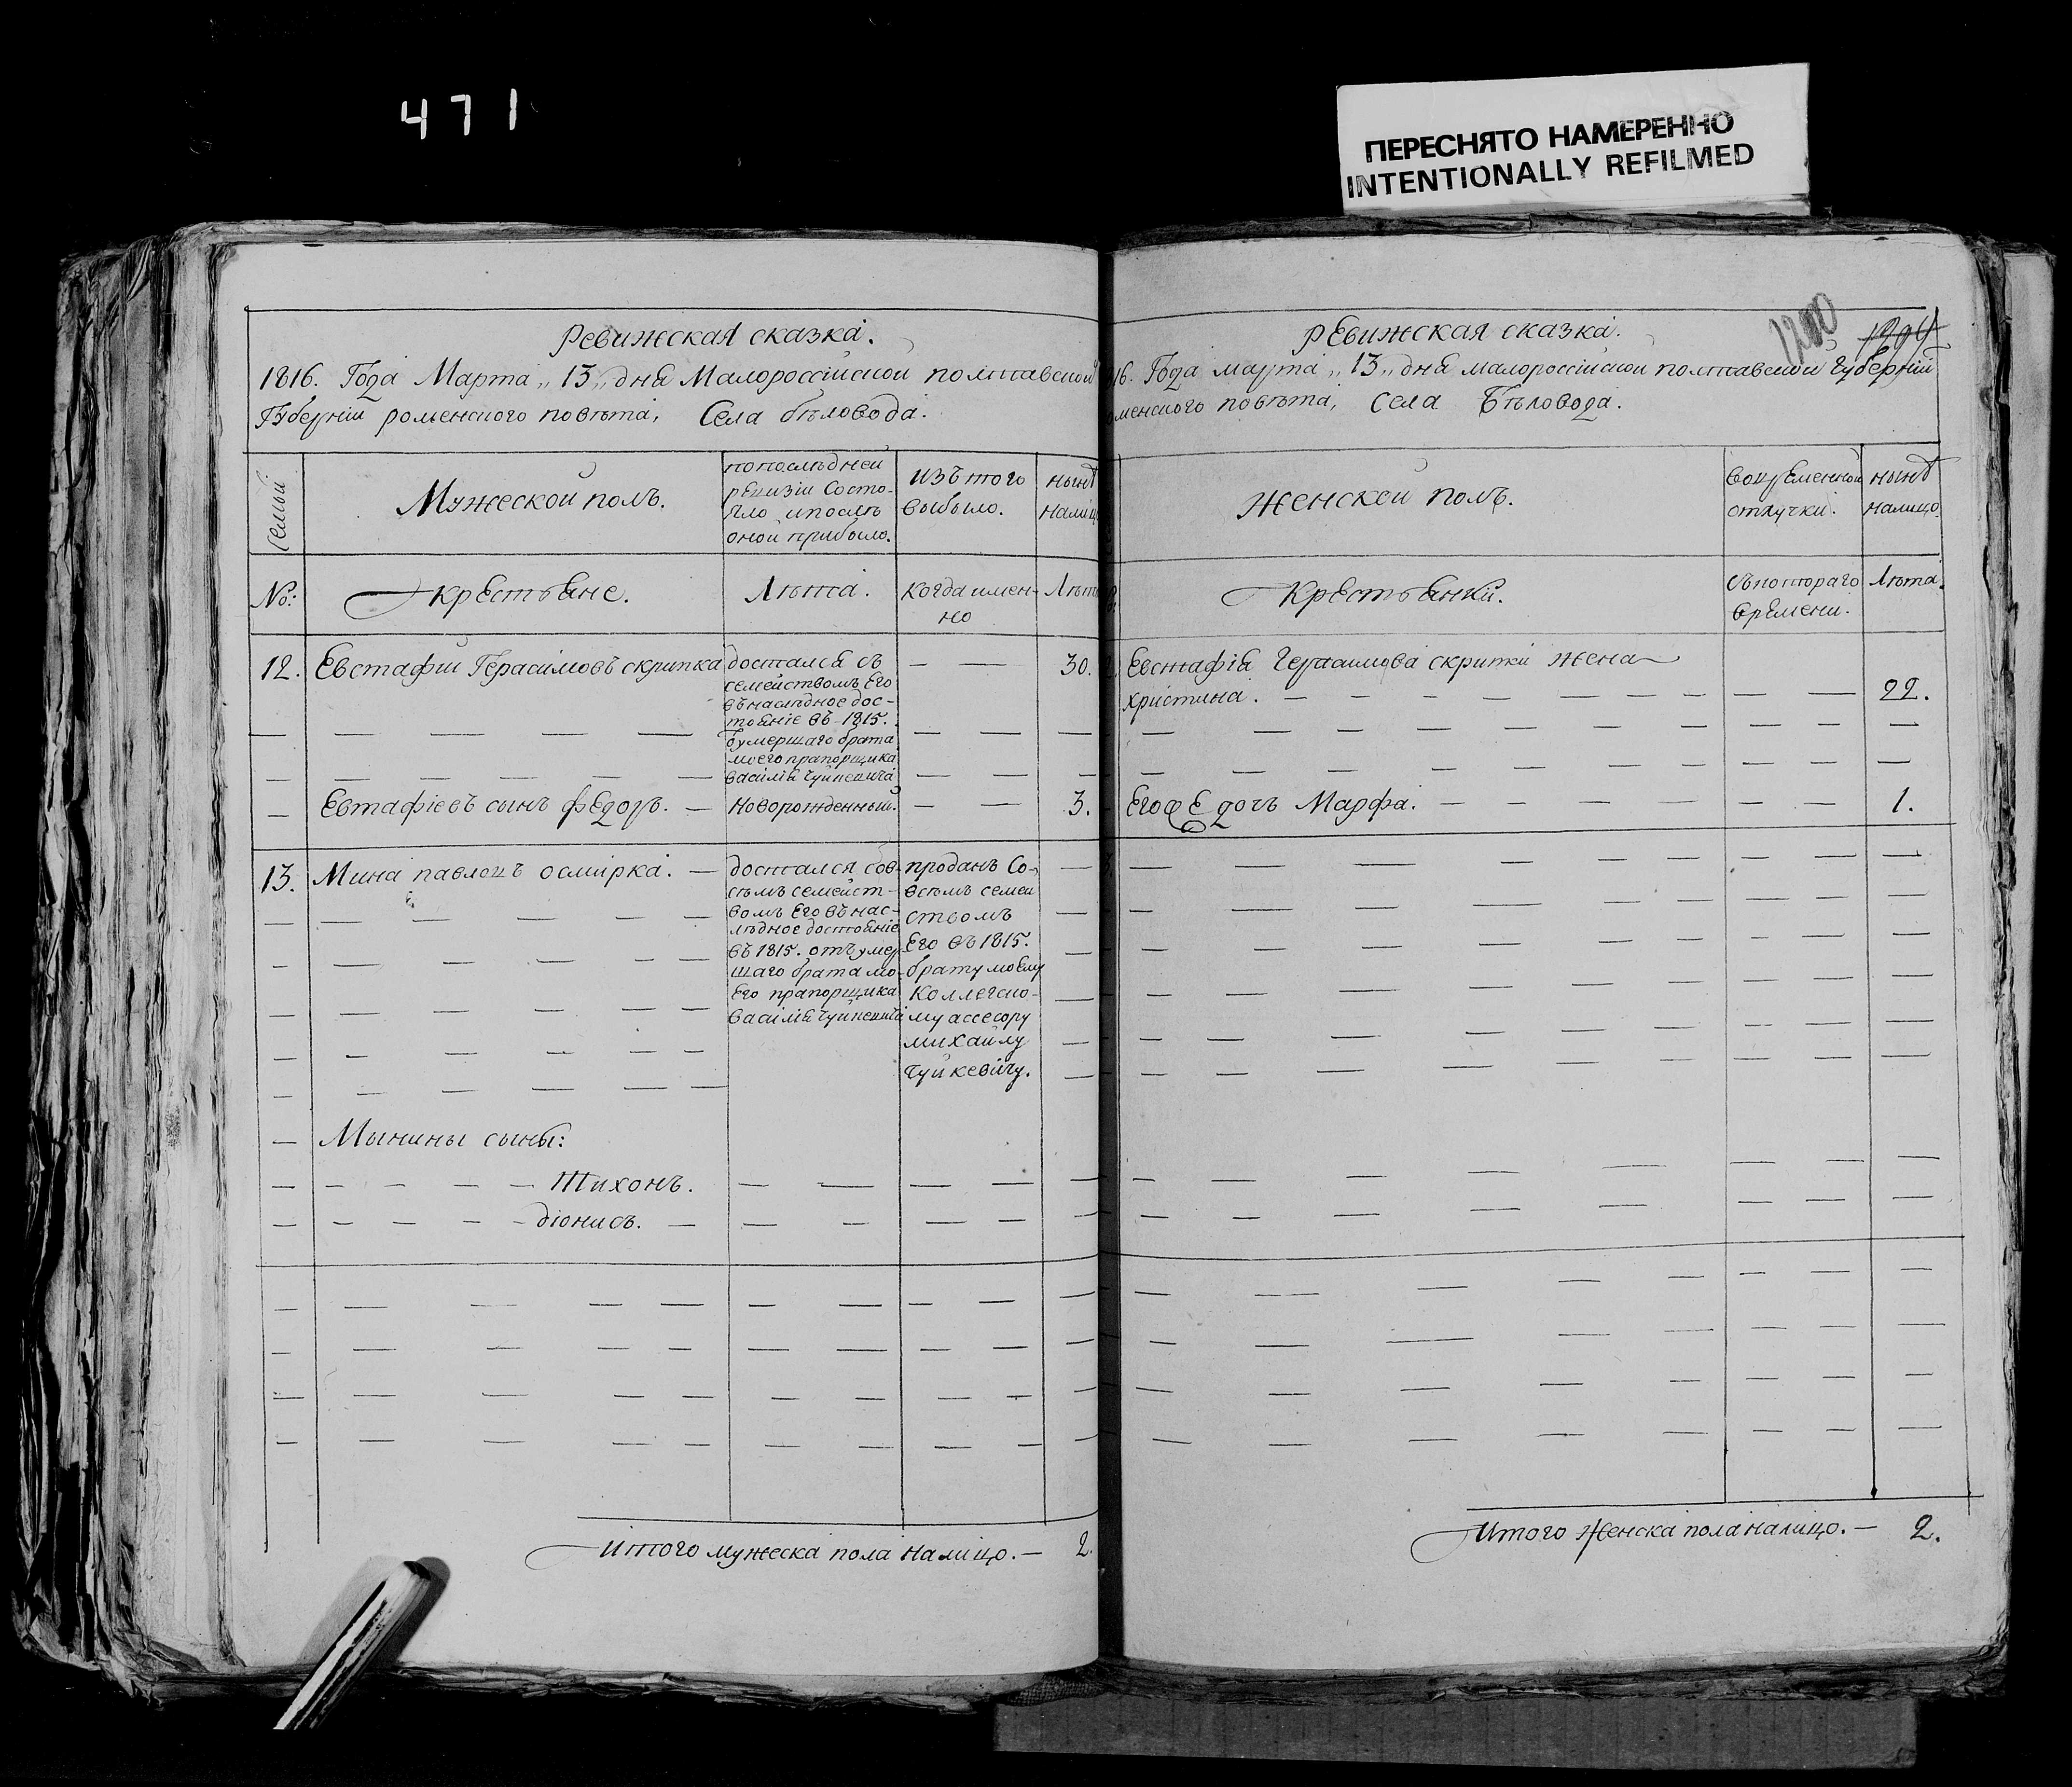 471
ПЕРЕСНЯТО НАМЕРЕННО
INTENTIONALLY REFILMED
Ревижская сказка.
1816. Года Марта „13„ дня Малороссійской полтавской
Губерніи роменского повѣта, Села бѣловода.
семьи
Мужеской полъ.
попослѣдней
ревизіи Состо-
яло ипослѣ
оной прибыло.
Изъ того
выбыло.
нынѣ
налицо
No:
крестьяне.
Лѣта.
когда имен-
но
Лѣта
12. Евстафій Герасимовъ скрипка
достался съ
семействомъ Его
въ наслѣдное дос-
тояніе въ 1815.
умершаго брата
моего прапорщика
василія чуйкевича
30.
Евтафіевъ сынъ федоръ. —
Новорожденный.
3.
13. Мина павловъ осмірка. —
достался сов-
сѣмъ семейст-
вомъ Его въ нас-
лѣдное достояніе
въ 1815. отъ умер
шаго брата мо-
Его прапорщика
василія чуйкевича
проданъ Со-
всѣмъ семей
ствомъ
Его въ 1815.
брату моему
Коллегско-
му ассесору
михайлу
чуйкевичу.
Мынины сыны:
Тихонъ.
діонисъ. —
Итого мужеска пола налицо. — 2.
рЕвижская сказка.
1200 1204
16. Года марта „13„ дня малороссійской полтавской Губерніи
оменского повѣта, Села Бѣловода.
Женской полъ.
вовременной
отлучки.
нынѣ
налицо.
крестьянки.
съкотораго
времени.
Лѣта.
Евстафія Герасимова скрипки жена
христина. — 22.
Его дочь Марфа. — 1.
Итого Женска пола налицо. — 2.